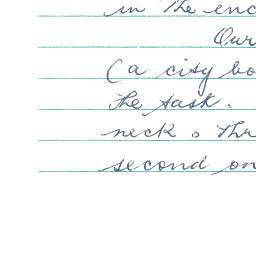 in the enc
Our
(a city bo
the task.
neck & thr
second on